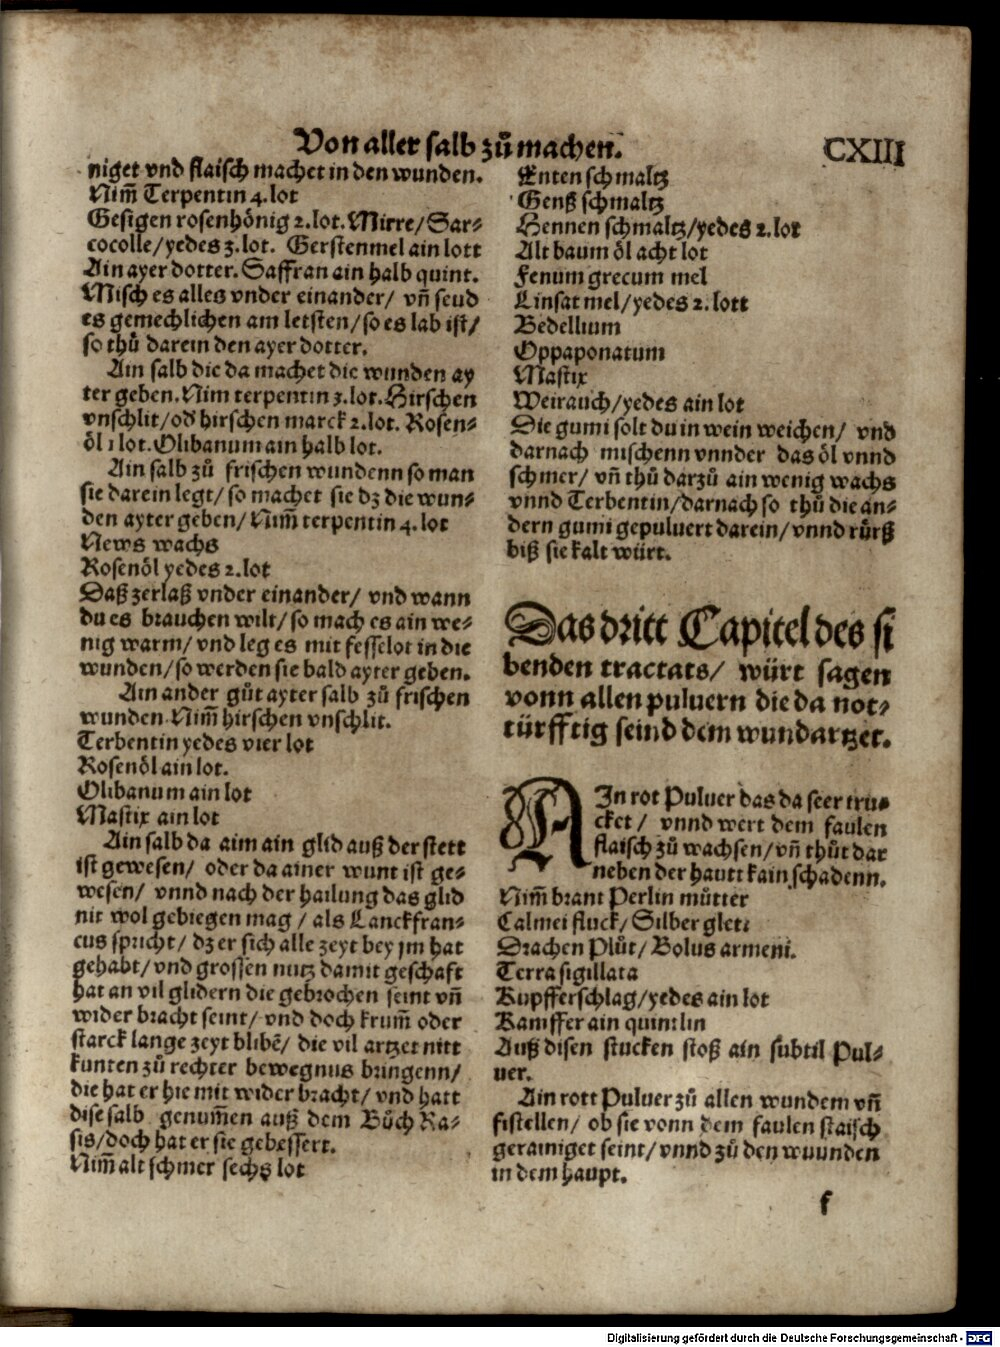 Von aller salb zů machen.
CXIII
niget vnd flaisch machet in den wunden.
Nim̃ Terpentin 4. lot
Gesigen rosenhönig 2. lot. Mirre/ Sar⸗
cocolle/ yedes 3. lot. Gerstenmel ain lott
Ain ayer dotter. Saffran ain halb quint.
Misch es alles vnder einander/ vñ seud
es gemechlichen am letsten/ so es lab ist/
so thů darein den ayer dotter.
Ain salb die da machet die wunden ay
ter geben. Nim terpentin 3. lot. Hirschen
vnschlit/ od̕ hirschen marck 2. lot. Rosen⸗
öl 1 lot. Olibanum ain halb lot.
Ain salb zů frischen wundenn so man
sie darein legt/ so machet sie dz die wun⸗
den ayter geben/ Nim̃ terpentin 4. lot
News wachs
Rosenöl yedes 2. lot
Daß zerlaß vnder einander/ vnd wann
du es brauchen wilt/ so mach es ain we⸗
nig warm/ vnd leg es mit fesselot in die
wunden/ so werden sie bald ayter geben.
Ain ander gůt ayter salb zů frischen
wunden. Nim̃ hirschen vnschlit.
Terbentin yedes vier lot
Rosenöl ain lot.
Olibanum ain lot
Mastix ain lot
Ain salb da aim ain glid auß der stett
ist gewesen/ oder da ainer wunt ist ge⸗
wesen/ vnnd nach der hailung das glid
nit wol gebiegen mag / als Lanckfran⸗
cus spricht/ dz er sich alle zeyt bey jm hat
gehabt/ vnd grossen nutz damit geschaft
hat an vil glidern die gebrochen seint vñ
wider bracht seint/ vnd doch krum̃ oder
starck lange zeyt blibē/ die vil artzet nitt
kunten zů rechter bewegnus bringenn/
die hat er hie mit wider bracht/ vnd hatt
dise salb genum̃en auß dem Bůch Ra⸗
sis/ doch hat er sie gebessert.
Nim̃ alt schmer sechs lot
Enten schmaltz
Genß schmaltz
Hennen schmaltz/ yedes 2. lot
Alt baum öl acht lot
Fenum grecum mel
Linsat mel/ yedes 2. lott
Bedellium
Oppaponatum
Mastix
Weirauch/ yedes ain lot
Die gumi solt du in wein weichen/ vnd
darnach mischenn vnnder das öl vnnd
schmer/ vñ thů darzů ain wenig wachs
vnnd Terbentin/ darnach so thů die an⸗
dern gumi gepuluert darein/ vnnd růrß
biß sie kalt würt.
Das dritt Capitel des si
benden tractats/ würt sagen
vonn allen puluern die da not⸗
türfftig seind dem wundartzet.
AIn rot Puluer das da seer tru⸗
cket / vnnd wert dem faulen
flaisch zů wachsen/ vñ thůt dar
neben der hautt kain schadenn.
Nim̃ brant Perlin můtter
Calmei fluck/ Silber glett
Drachen Plůt/ Bolus armeni.
Terra sigillata
Kupfferschlag/ yedes ain lot
Kampffer ain quintlin
Auß disen stucken stoß ain subtil Pul⸗
uer.
Ain rott Puluer zů allen wundem vñ
fistellen/ ob sie vonn dem faulen flaisch
gerainiget seint/ vnnd zů den wuunden
in dem haupt.
f
Digitalisierung gefördert durch die Deutsche Forschungsgemeinschaft - DFG